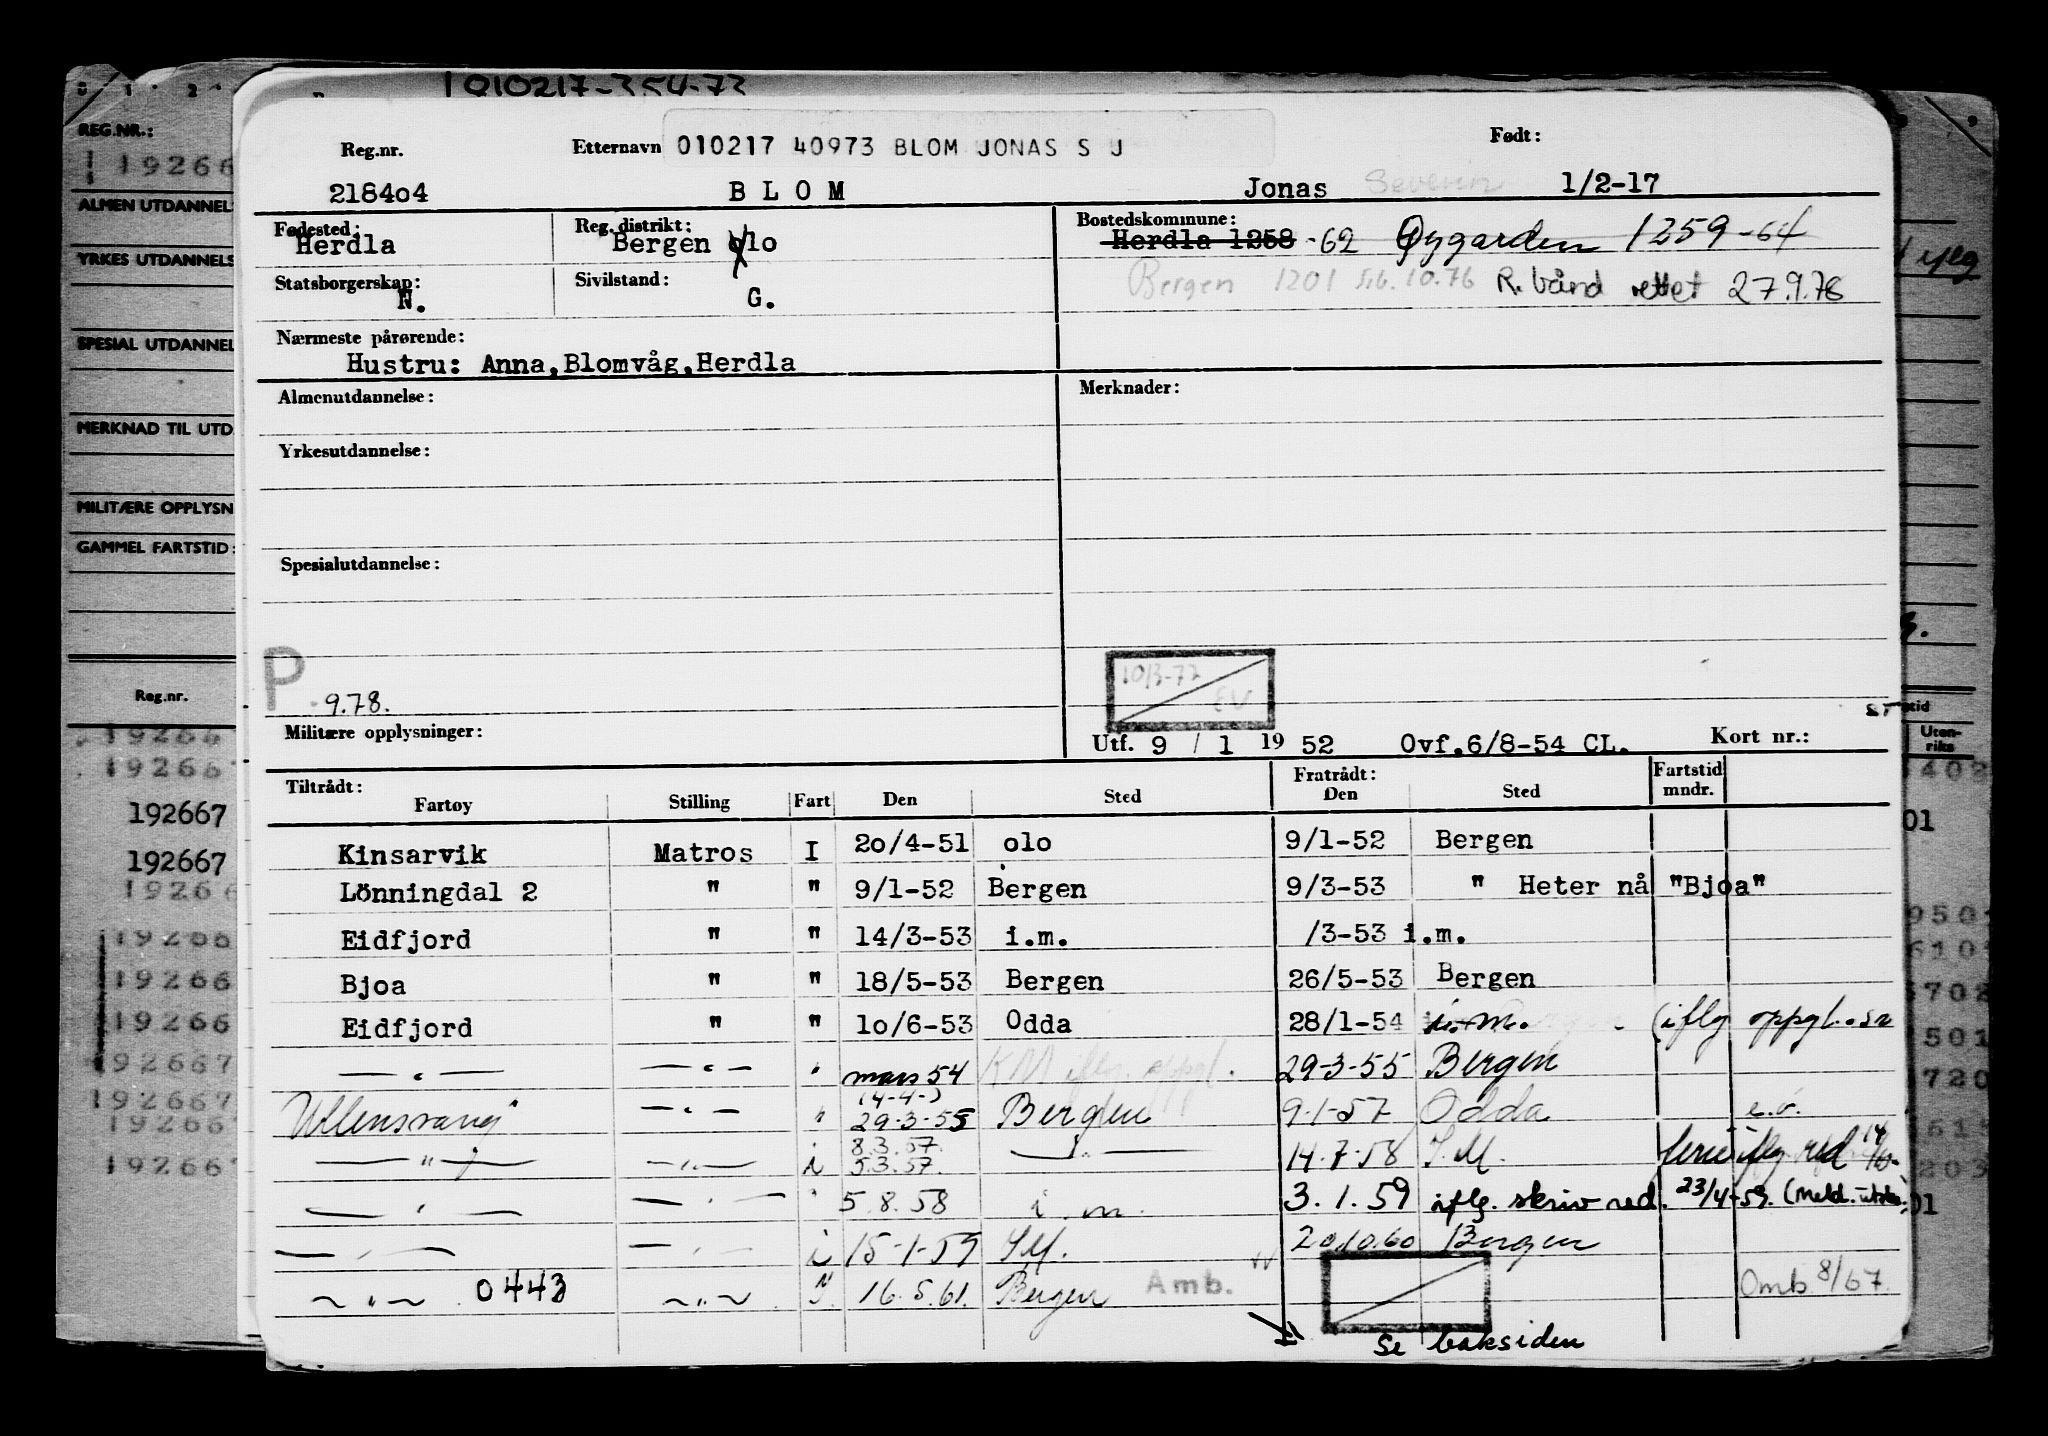 1010217-354-73
Reg.nr. Etternavn 010217 40973 BLOM JONAS S J Født:
218404 B L O M Jonas Severin 1/2-17
Fødested: Herdla Reg. distrikt: Bergen olo Bostedskommune: Herdla 1258 -62 Øygarden 1259-64
Statsborgerskap: N. Sivilstand: G. Bergen 1201 16.10.76 R. bånd rettet 27.9.78
Nærmeste pårørende:
Hustru: Anna,Blomvåg,Herdla
Almenutdannelse: Merknader:
Yrkesutdannelse:
Spesialutdannelse:
P 9.78. 10/3-77 EV
Militære opplysninger: Utf. 9 / 1 19 52 Ovf.6/8-54 CL. Kort nr.: ST
Tiltrådt: Fartøy Stilling Fart Den Sted Fratrådt: Den Sted Fartstid mndr.
Kinsarvik Matros I 2o/4-51 olo 9/1-52 Bergen
Lönningdal 2 " " 9/1-52 Bergen 9/3-53 " Heter nå "Bjoa"
Eidfjord " " 14/3-53 i.m. /3-53 i.m.
Bjoa " " 18/5-53 Bergen 26/5-53 Bergen
Eidfjord " " 1o/6-53 Odda 28/1-54 i.m. (iflg oppgl. sr
— " — — " — " mars 54 KM iflg. oppgl. 29-3-55 Bergen
Ullensvang — " — " 14-4-) 29-3-55 Bergen 9-1-57 Odda e.o.
— " — — " — i 8.3.57. 5.3.57. — " — 14-7-58 I.M. ferie iflg red 14/10-
— " — — " — " 5.8.58 i.m. 3.1.59 iflg. skriv red. 23/4-59. (Meld. utsk.)
— " — — " — i 15-1-59 I.M. 20.10.60 Bergen
— " — 0443 — " — " 16.5.61. Bergen Amb. Omb 8/67.
Se baksiden
REG.NR.:
19266
ALMEN UTDANNEL
YRKES UTDANNELS
iflg
SPESIAL UTDANNEL
MERKNAD TIL UTD
MILITÆRE OPPLYSN
GAMMEL FARTSTID:
Reg.nr.
Uten-
riks
19266
19266 402
192667 01
192667
19266
19266 950
19266 610
19266 702
19266 501
192667 720
192667
19266 615
192667 203
01